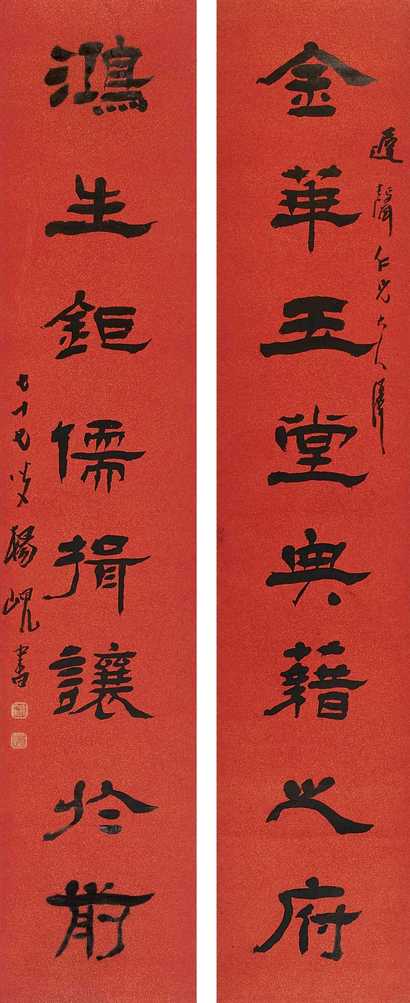 金華玉堂典藉之府
遲聲仁兄大人屬
鴻生鉅儒揖讓於前
七十七叟楊峴書